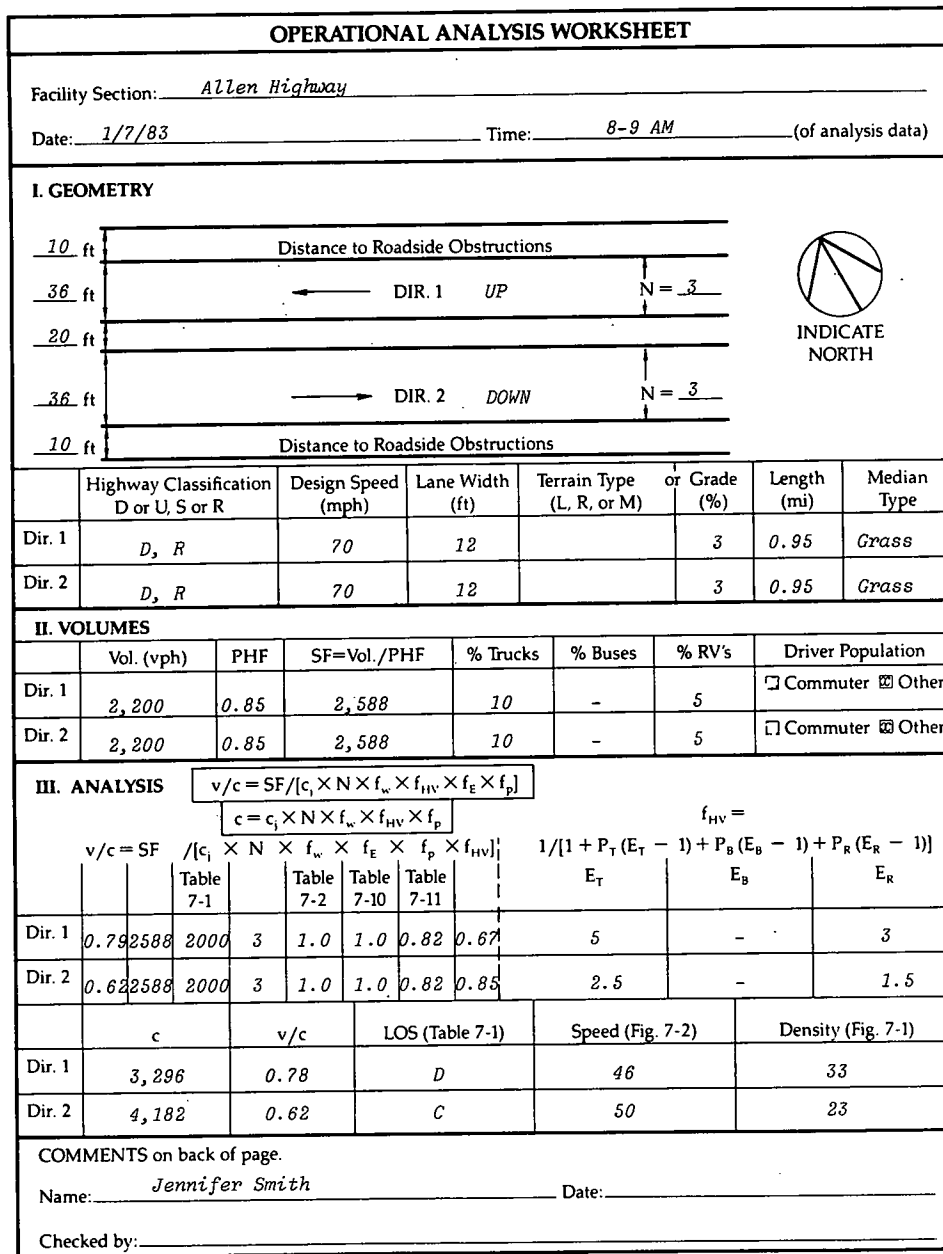 OPERATIONAL ANALYSIS WORKSHEET
Facility Section: Allen Highway
Date: 1/7/83 Time: 8-9 AM (of analysis data)
I. GEOMETRY
10 ft Distance to Roadside Obstructions
36 ft DIR. 1 UP N = 3
20 ft
INDICATE
NORTH
36 ft DIR. 2 DOWN N = 3
10 ft Distance to Roadside Obstructions
Highway Classification Design Speed Lane Width Terrain Type or Grade Length Median
D or U, S or R (mph) (ft) (L, R, or M) (%) (mi) Type
Dir. 1 D, R 70 12 3 0.95 Grass
Dir. 2 D, R 70 12 3 0.95 Grass
II. VOLUMES
Vol. (vph) PHF SF=Vol./PHF % Trucks % Buses % RV's Driver Population
Dir. 1 2,200 0.85 2,588 10 - 5 ☐ Commuter ☒ Other
Dir. 2 2,200 0.85 2,588 10 - 5 ☐ Commuter ☒ Other
III. ANALYSIS v/c = SF/[c_j × N × f_w × f_HV × f_E × f_p]
c = c_j × N × f_w × f_HV × f_p
f_HV =
v/c = SF /[c_j × N × f_w × f_E × f_p × f_HV] 1/[1 + P_T (E_T − 1) + P_B (E_B − 1) + P_R (E_R − 1)]
Table Table Table Table E_T E_B E_R
7-1 7-2 7-10 7-11
Dir. 1 0.79 2588 2000 3 1.0 1.0 0.82 0.67 5 - 3
Dir. 2 0.62 2588 2000 3 1.0 1.0 0.82 0.85 2.5 - 1.5
c v/c LOS (Table 7-1) Speed (Fig. 7-2) Density (Fig. 7-1)
Dir. 1 3,296 0.78 D 46 33
Dir. 2 4,182 0.62 C 50 23
COMMENTS on back of page.
Name: Jennifer Smith Date:
Checked by: